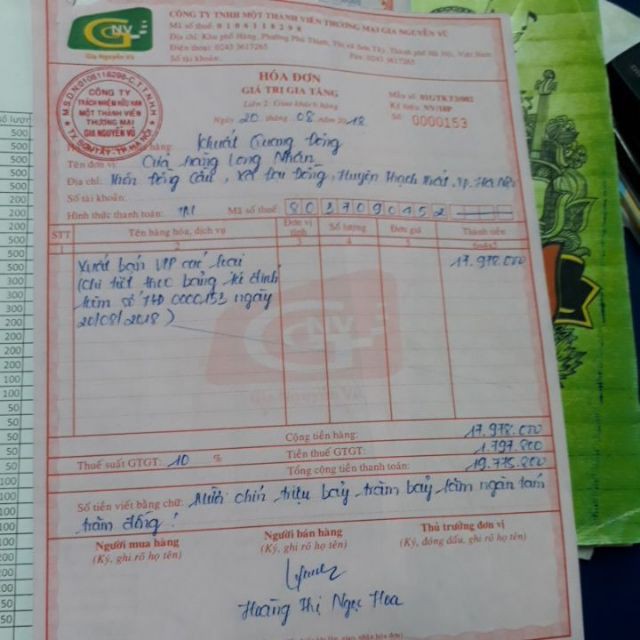 GNV
Gia Nguyễn Vũ
CÔNG TY TNHH MỘT THÀNH VIÊN THƯƠNG MẠI GIA NGUYÊN VŨ
Mã số thuế: 0106116298
Địa chỉ: Khu phố Hàng, Phường Phú Thịnh, Thị xã Sơn Tây, Thành phố Hà Nội, Việt Nam
Điện thoại: 0243 3617265 Fax: 0243 3617265
Số tài khoản:
M.S.D.N:0106116298-C.T.T.N.H.H
CÔNG TY
TRÁCH NHIỆM HỮU HẠN
MỘT THÀNH VIÊN
THƯƠNG MẠI
GIA NGUYÊN VŨ
TX.SƠN TÂY-TP.HÀ NỘI
HÓA ĐƠN
GIÁ TRỊ GIA TĂNG
Liên 2: Giao khách hàng
Ngày 20 tháng 08 năm 2018
Mẫu số: 01GTKT3/002
Ký hiệu: NV/18P
Số: 0000153
hàng: Khuất Quang Đông
Tên đơn vị: Cửa hàng Long Nhàn
Địa chỉ: Thôn Đông Cầu, Huyện Thạch Thất, Tp. Hà Nội
Số tài khoản:
Hình thức thanh toán: TM Mã số thuế: 8037090452
STT Tên hàng hóa, dịch vụ Đơn vị tính Số lượng Đơn giá Thành tiền
1 2 3 4 5 6=4x5
Xuất bán VPP các loại 17.978.000
(Chi tiết theo bảng kê đính
kèm số HĐ 0000153 ngày
20/08/2018)
GNV
Gia Nguyễn Vũ
Cộng tiền hàng: 17.978.000
Thuế suất GTGT: 10 % Tiền thuế GTGT: 1.797.800
Tổng cộng tiền thanh toán: 19.775.800
Số tiền viết bằng chữ: Mười chín triệu bảy trăm bảy lăm ngàn tám
trăm đồng!
Người mua hàng Người bán hàng Thủ trưởng đơn vị
(Ký, ghi rõ họ tên) (Ký, ghi rõ họ tên) (Ký, đóng dấu, ghi rõ họ tên)
Hoàng Thị Ngọc Hoa